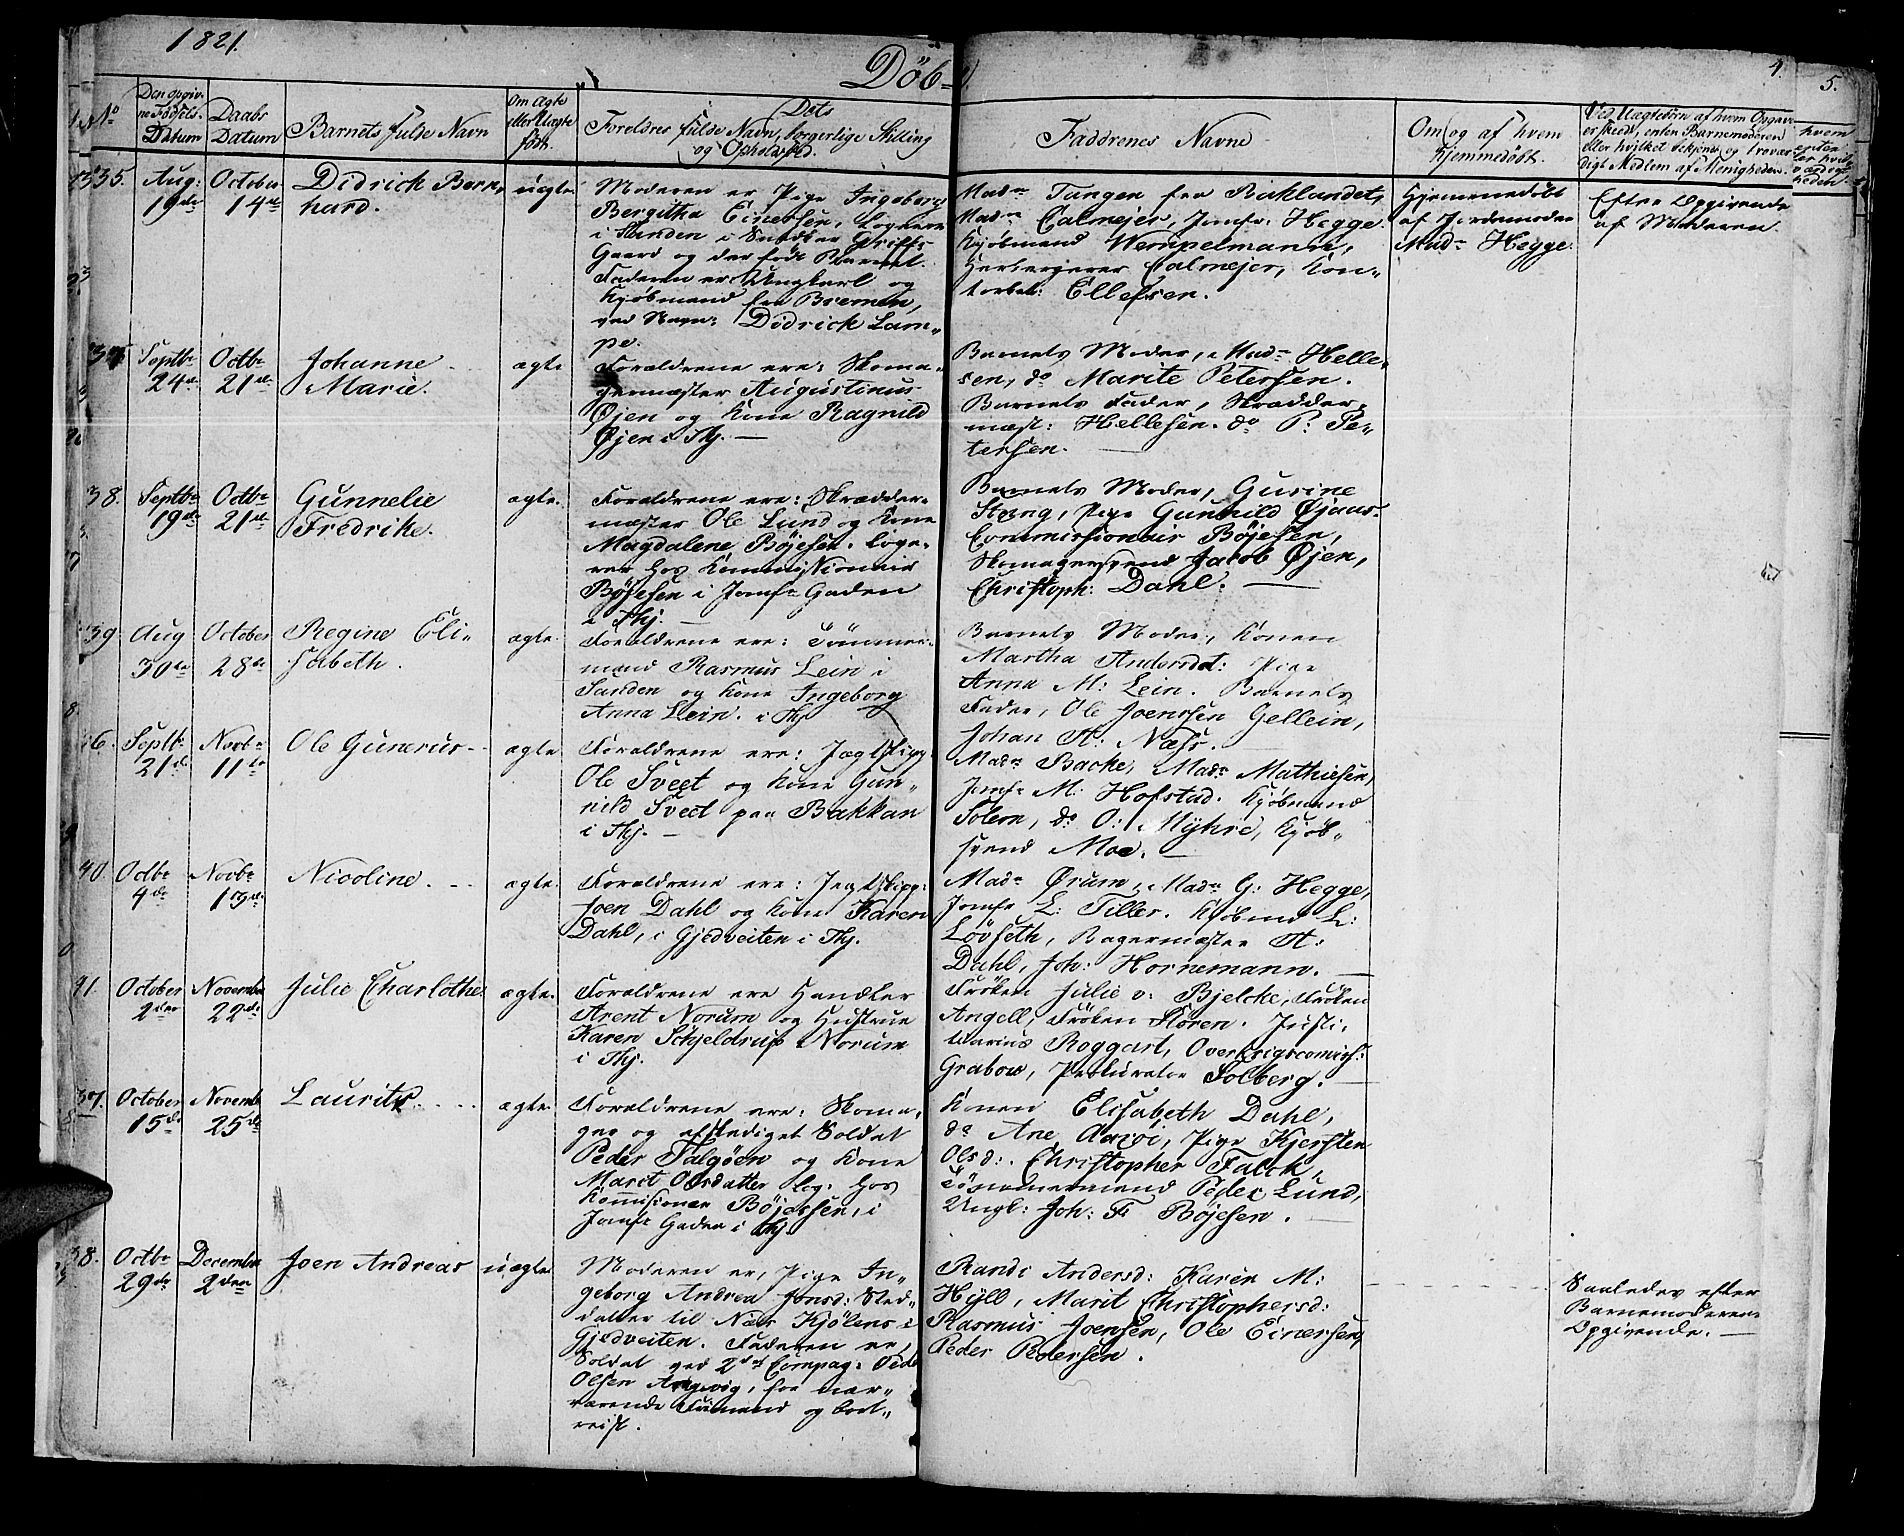 1821.
Döb-
4.
5.
No
Den opgiv-
ne Födsels-
Datum
Daabs
Datum
Barnets fulde Navn
Om Ægte
eller Uægte
født.
Forældres fulde Navn, Dets borgerlige Stilling
og Opholdsted.
Faddrenes Navne
Om og af hvem
hjemmedöbt.
Ved Uægtebörn af hvem Opgave
er skeed, enten Barnemoderen
eller hvilket bekjendt og troevær-
digt Medlem af Menigheden.
35.
Aug:
19de
October
14de
Didrick Bern-
hard.
uægte
Moderen er Pige Ingeborg
Bergitha Einersen, Logerer
i Sanden i Snedker Grifts
Gaard og der født Barnet.
Faderen er Ungkarl og
Kjöbmand fra Bremen,
ved Navn: Didrick Lam-
pe.
Madm Tangen fra Baklandet,
Madm Calmejer, Jomfr: Hegge
Kjöbmand Wempelmann,
Herbergerer Calmejer, Con-
torbet: Ellefsen.
Hjemmedöbt
af Jordemoder
Madm Hegge.
Efter Opgivende
af Moderen.
Septbr
24de
Octbr
21de
Johanne
Marie.
ægte
Forældrene ere: Skoma-
germester Augustinus
Øjen og Kone Ragnild
Øjen i Thj. —
Barnets Moder, Mad: Helle-
sen, do Marite Petersen.
Barnets Fader, Skrædder-
mest: Hellesen. do P: Pe-
tersen.
38.
Septbr
19de
Octbr
21de
Gunnelie
Fredrike.
ægte.
Forældrene ere: Skrædder-
mester Ole Lund og Kone
Magdalene Böjesen. Loge-
rer hos Kommissionair
Böjesen i Jomfr Gaden
i Thj. —
Barnets Moder, Gurine
Stang, Pige Gunnild Øjaus-
Commissionair Böjesen,
Skomagersvend Jacob Øjen,
Christoph: Dahl. —
39.
Aug
30te
October
28de
Regine Eli-
sabeth.
ægte.
Forældrene ere: Tömmer-
mand Rasmus Lein i
Sanden og Kone Ingeborg
Anna Lein. i Thj
Barnets Moder, Konen
Martha Andersdot: Pige
Anna M: Lein. Barnets
Fader, Ole Joenssen Gellein,
Johan A: Næss.
Septbr
21de
Novbr
11te
Ole Gunerus
ægte
Forældrene ere: Jægtskipp:
Ole Sveet og Kone Gun-
nild Sveet paa Bakkan
i Thj. —
Madm Backe, Madm Mathiesen,
Jomfr M: Hofstad. Kjöbmand
Solem, do O: Myhre, Kjöb-
svend Moe. —
40.
Octbr
4de
Novbr
19de
Nicoline.
ægte.
Forældrene ere: Jegtskipp:
Joen Dahl og Kone Karen
Dahl, i Gjedveiten i Thj.
Madm Ørum, Madm G: Hegge,
Jomfr L: Tiller. Kjöbmd L:
Lövseth, Bagermester A:
Dahl, Joh: Hornemann. —
41.
October
2den
November
22de
Julie Charlothe
ægte.
Forældrene ere Handler
Arent Norum og Hustrue
Karen Schjeldrup Norum
i Thj.
Fröken Julie v: Bjelcke, Fröken
Angell, Fröken Stören. Justi-
tiarius Roggart, Overkrigscomiss:
Grabow, Prokurator Solberg. —
37.
October
15de
Novembr
25de
Lauritz
ægte
Forældrene ere: Skoma-
ger og afskediget Soldat
Peder Salgöen og Kone
Marit Olsdatter log: hos
Kommisioner Böjessen, i
Jomfr Gaden i Thj
Konen Elisabeth Dahl,
do Ane Aasöi, Pige Kjersten
Olsd:. Christopher Falck,
Tömmermand Peder Lund,
Ungk: Joh: F: Böjesen.
38.
Octbr
29de
December
2den
Joen Andreas
uægte
Moderen er, Pige In-
geborg Andrea Jonsd: Sted-
datter til Niels Kjölens i
Gjedveiten. Faderen er,
Soldat ved 2det Compag: Peder
Olsen Angvig, for nær-
værende Frimand og bort-
reist.
Randi Andersd: Karen M:
Hÿll, Marit Christophersd:
Rasmus Joensen, Ole Einersen,
Peder Pedersen.
Saaledes efter
Barnemoderens
Opgivende. —